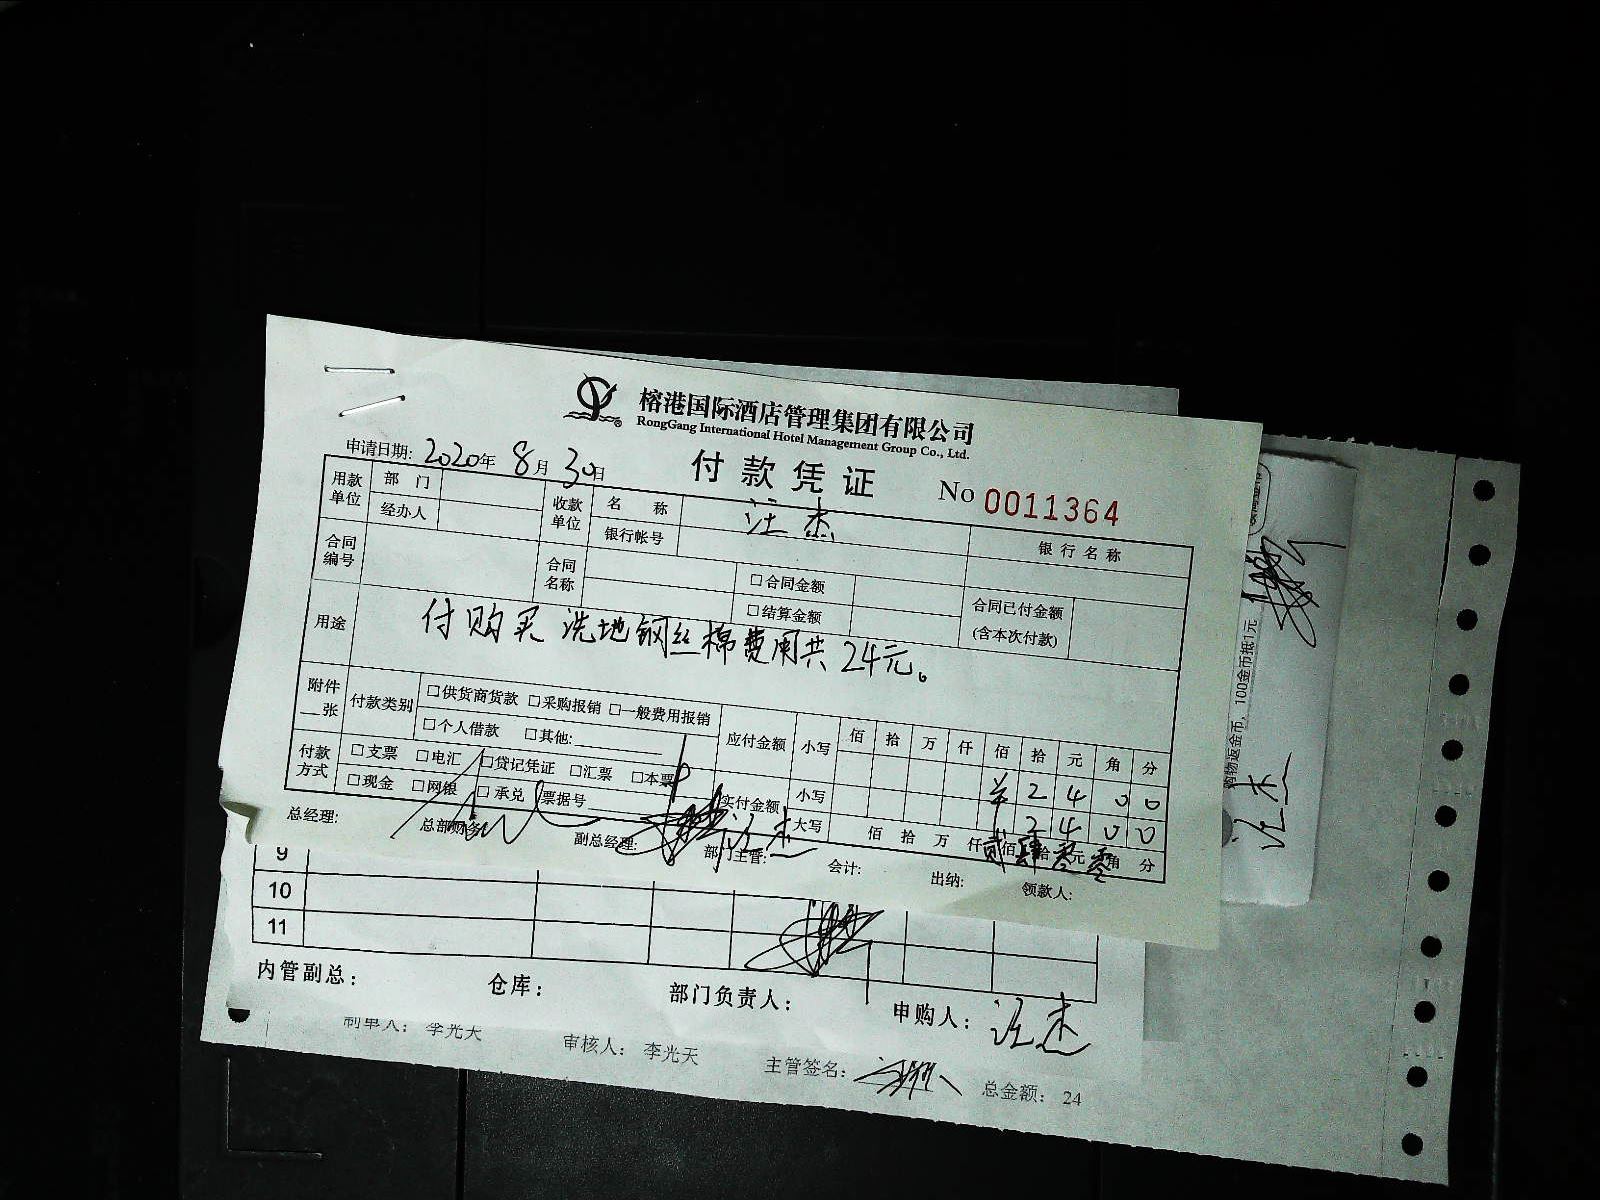 榕港国际酒店管理集团有限公司
RongGang International Hotel Management Group Co., Ltd.
申请日期: 2020年 8月 30日
付款凭证 No 0011364
用款单位 部门 收款单位 名称 汪杰 银行名称
经办人 银行帐号
合同编号 合同名称 □合同金额 合同已付金额(含本次付款)
□结算金额
用途 付购买洗地钢丝棉费用共24元。
附件 张 付款类别 □供货商货款 □采购报销 □一般费用报销 应付金额 小写 佰 拾 万 仟 佰 拾 元 角 分
□个人借款 □其他:
¥ 2 4 0 0
付款方式 □支票 □电汇 □贷记凭证 □汇票 □本票 实付金额 小写 2 4 0 0
□现金 □网银 □承兑 票据号 大写 佰 拾 万 仟 佰 贰 拾 肆 元 零 角 零 分
总经理: 总部财务 副总经理: 部门主管: 汪杰 会计: 出纳: 领款人:
9
10
11
内管副总: 仓库: 部门负责人: 申购人: 汪杰
制单人: 李光天 审核人: 李光天 主管签名: 总金额: 24
购物返金币，100金币抵1元
汪杰